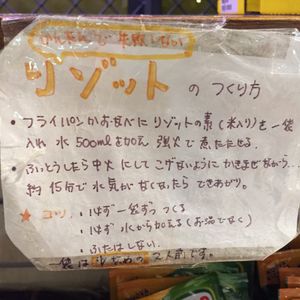 かんたんで失敗しない
リゾットのつくり方
• フライパンかおなべにリゾットの素(米入り)を一袋
入れ 水500mlを加え 強火で煮たたせる.
• ふっとうしたら中火にしてこげないようにかきまぜながら.
約15分で水気がなくなったらできあがり。
★コツ • 1必ず一袋ずつつくる
• 1必ず水から加える(お湯でなく)
• ふたはしない.
一袋は少なめの2人前です。